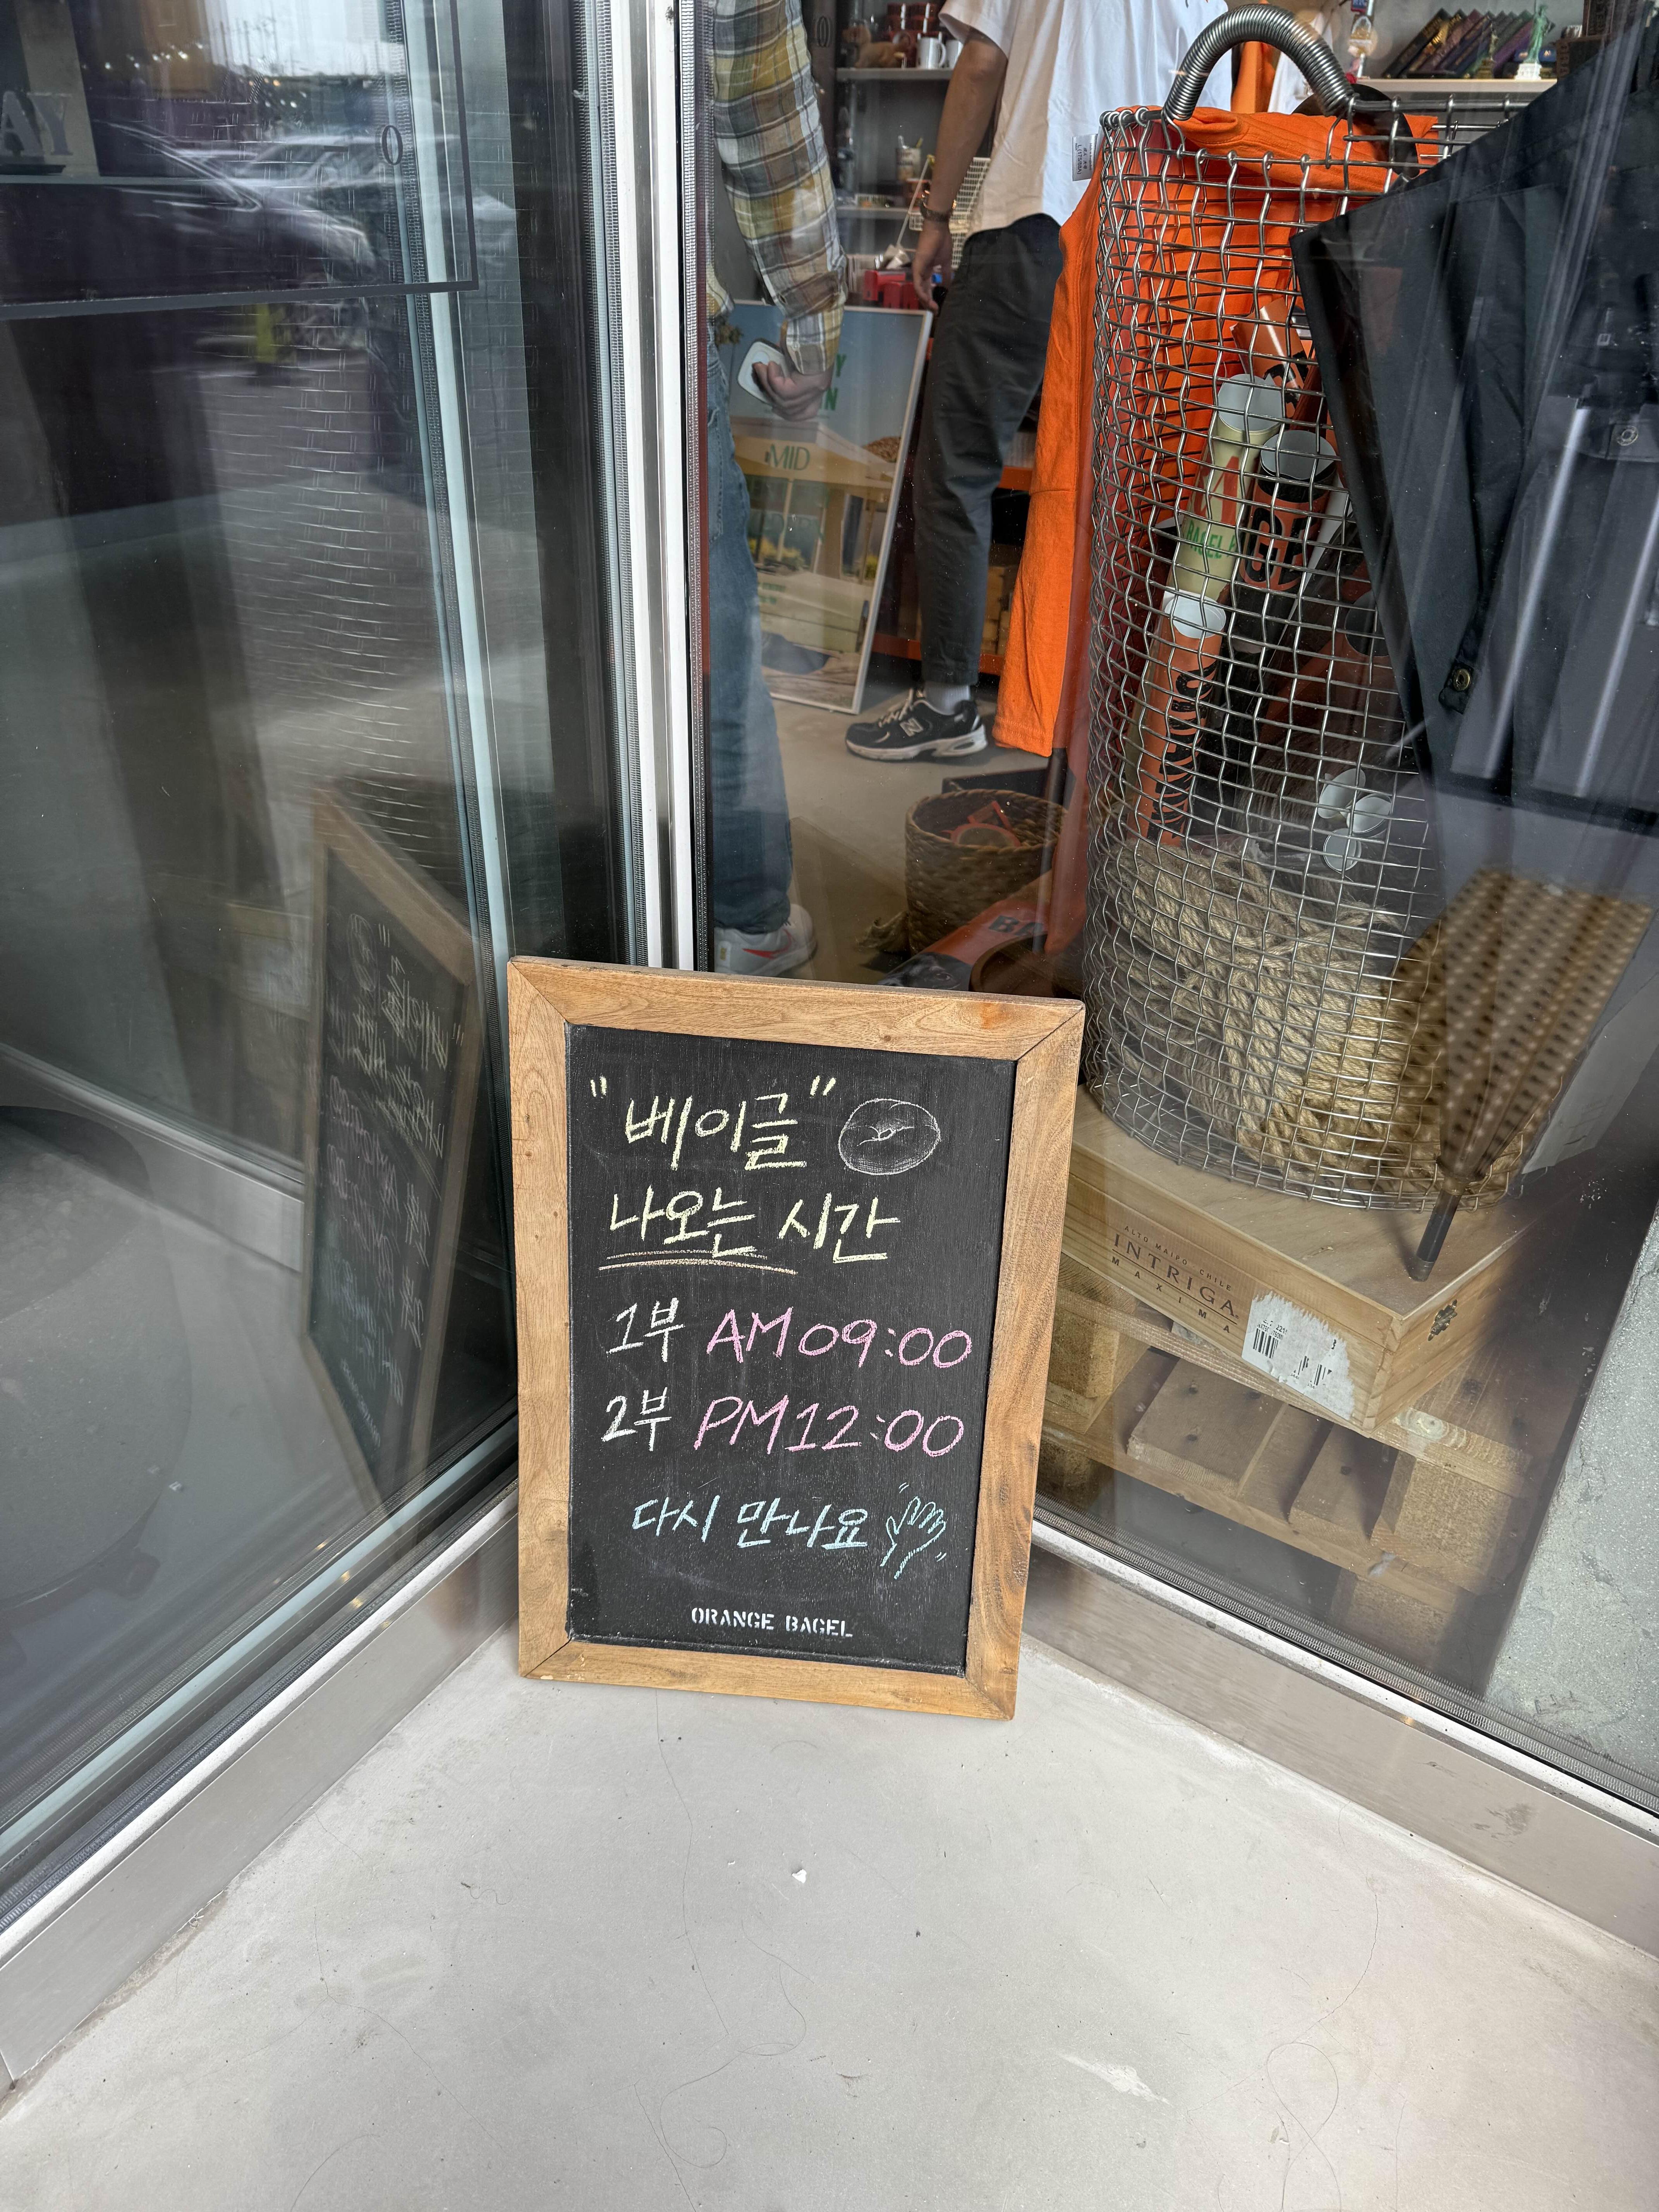 "베이글"
나오는 시간
1부 AM 09:00
2부 PM 12:00
다시 만나요
ORANGE BAGEL
ALTO MAIPO CHILE
INTRIGA
MAXIMA
MID
BAGEL
AY